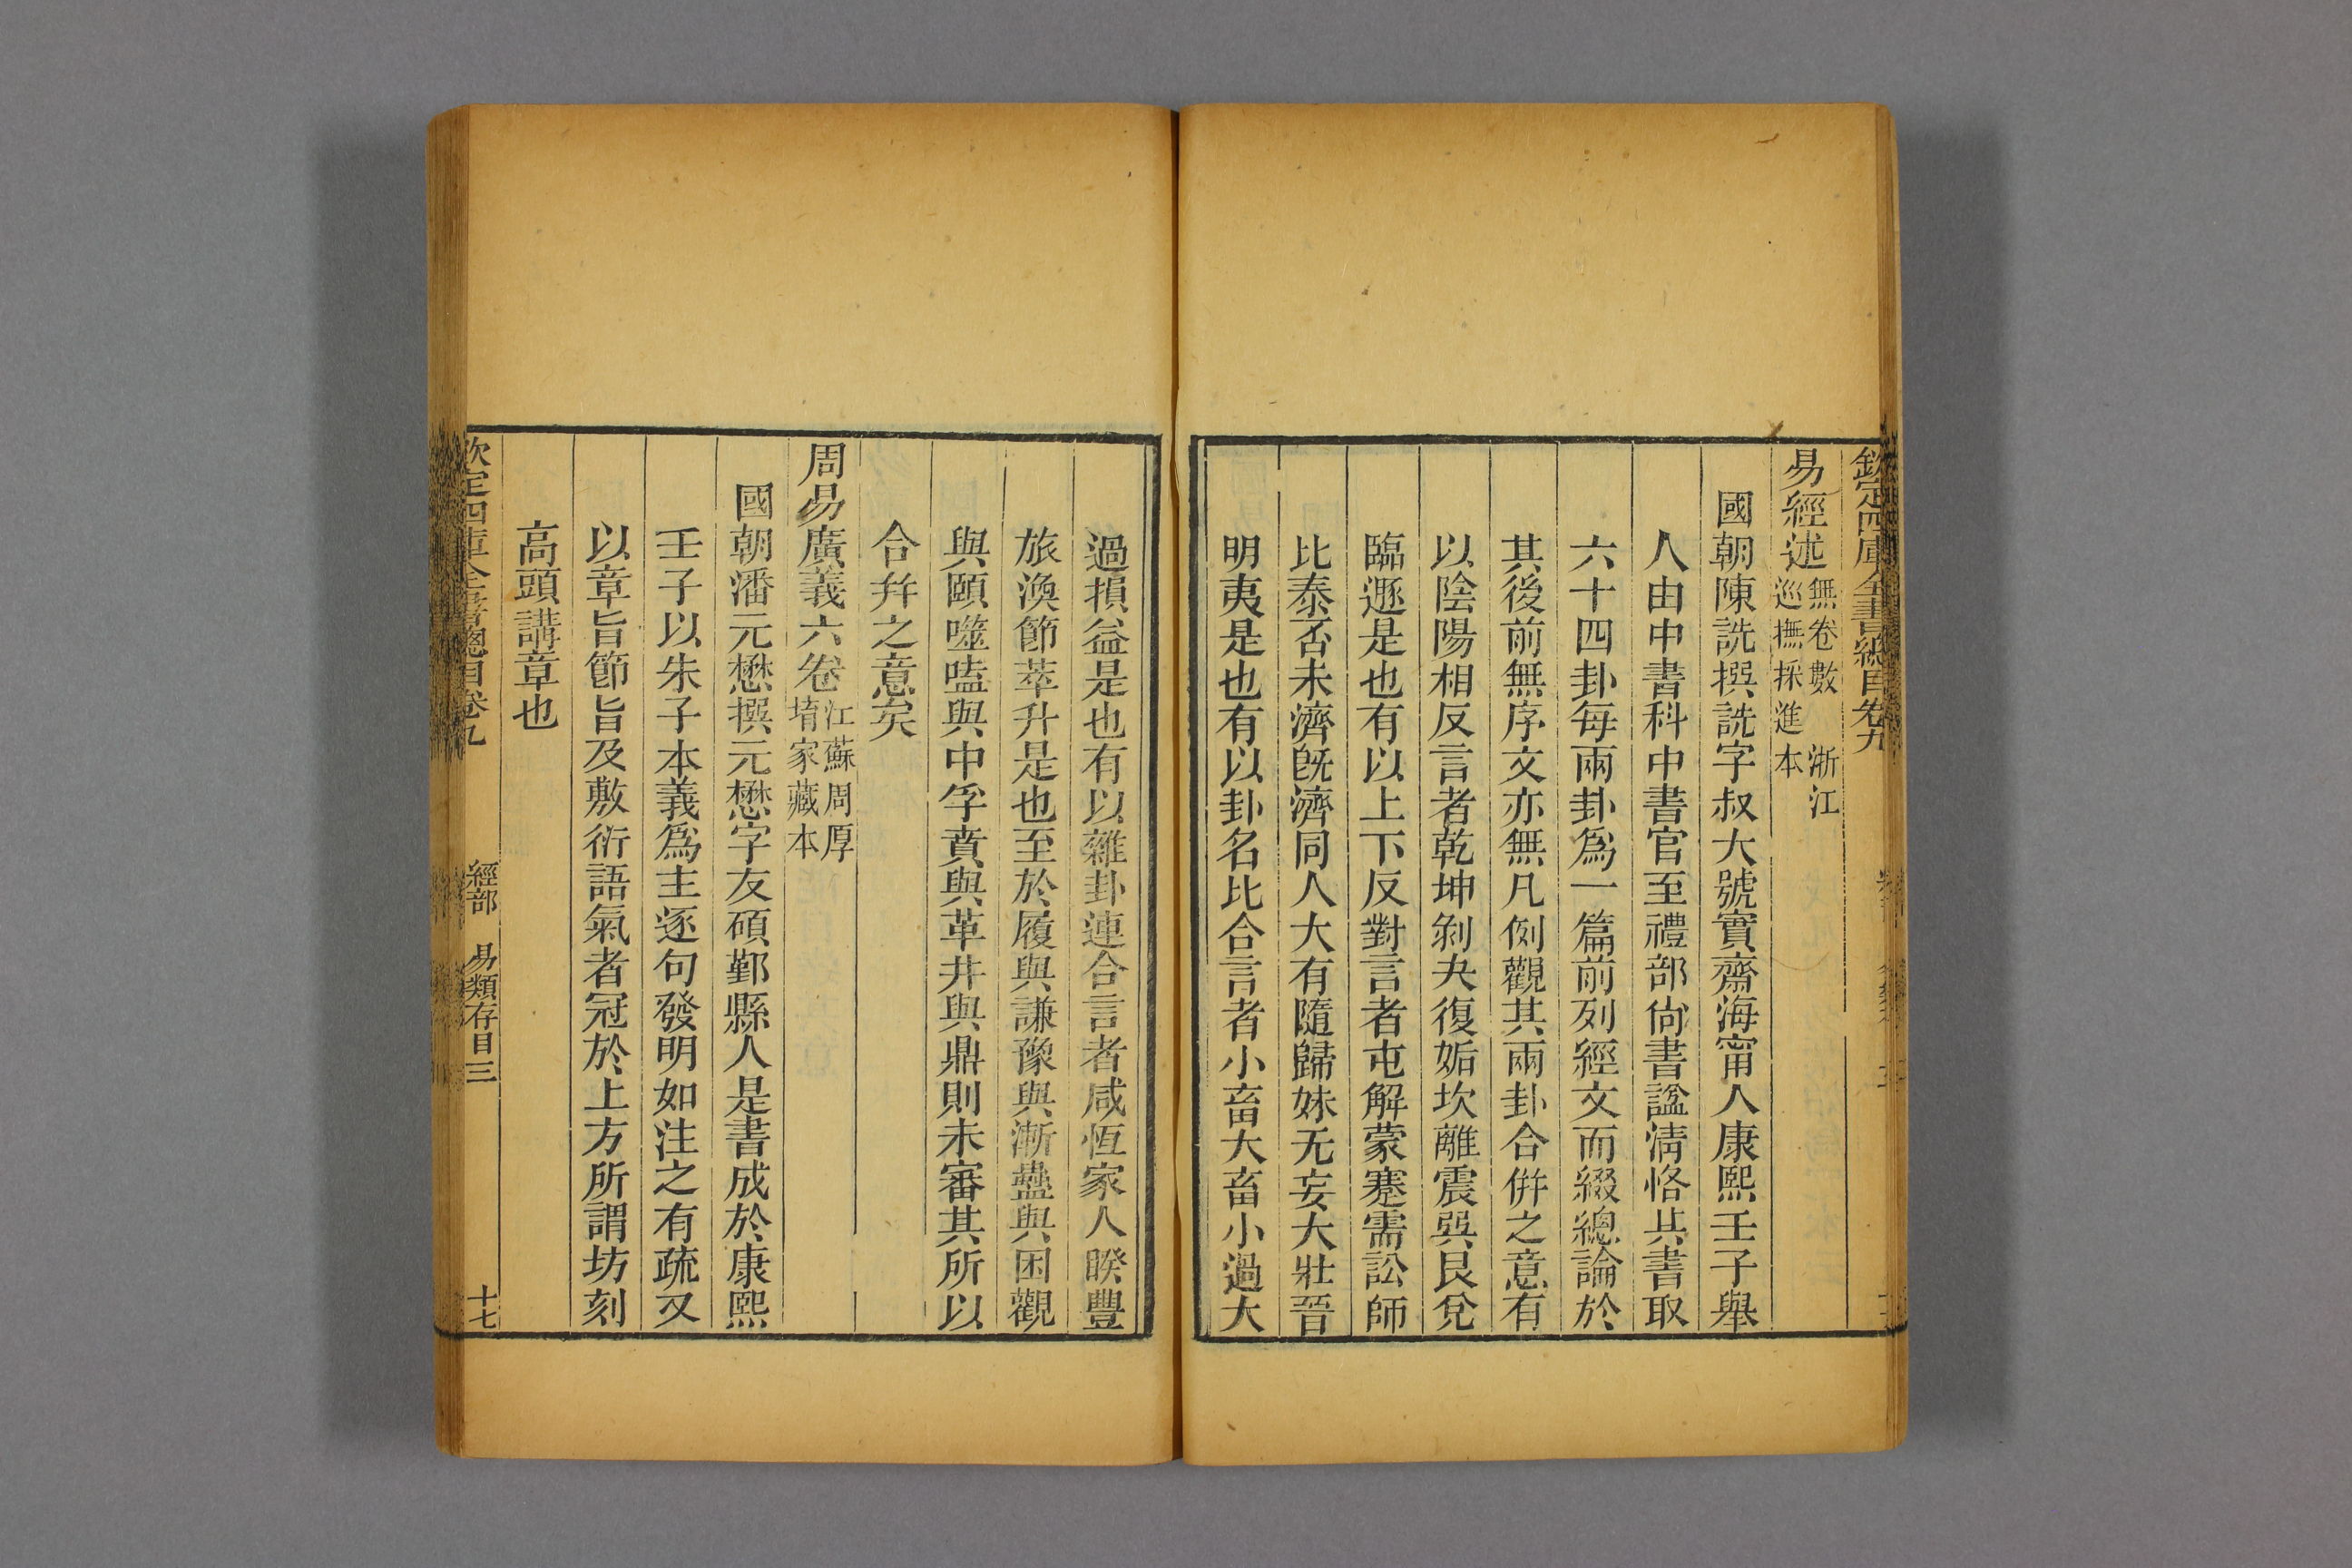 欽定四庫全書總目卷九
易經述無卷數 浙江巡撫採進本
國朝陳詵撰詵字叔大號實齋海甯人康熙壬子舉
人由中書科中書官至禮部尙書諡淸恪其書取
六十四卦每兩卦爲一篇前列經文而綴總論於
其後前無序文亦無凡例觀其兩卦合倂之意有
以陰陽相反言者乾坤剝夬復姤坎離震巽艮兌
臨遯是也有以上下反對言者屯解蒙蹇需訟師
比泰否未濟旣濟同人大有隨歸妹无妄大壯晉
明夷是也有以卦名比合言者小畜大畜小過大
過損益是也有以雜卦連合言者咸恆家人睽豐
旅渙節萃升是也至於履與謙豫與漸蠱與困觀
與頤噬嗑與中孚賁與革井與鼎則未審其所以
合幷之意矣
周易廣義六卷江蘇周厚堉家藏本
國朝潘元懋撰元懋字友碩鄞縣人是書成於康熙
壬子以朱子本義爲主逐句發明如注之有疏又
以章旨節旨及敷衍語氣者冠於上方所謂坊刻
高頭講章也
欽定四庫全書總目卷九 經部 易類存目三 十七